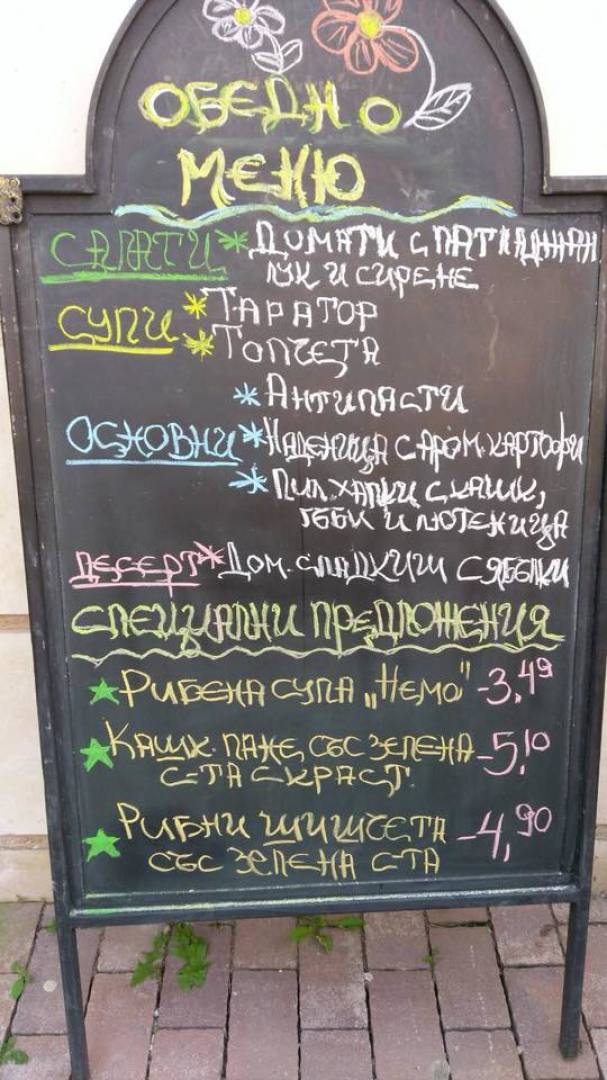 ОБЕДНО
МЕНЮ
САЛАТИ * ДОМАТИ С ПАТЛАДЖАН
ЛУК И СИРЕНЕ
СУПИ * ТАРАТОР
* ТОПЧЕТА
* АНТИПАСТИ
ОСНОВНИ * НАДЕНИЦА С АРОМ. КАРТОФИ
* ПИЛ. ХАПКИ С КАШК,
ГЪБИ И ЛЮТЕНИЦА
ДЕСЕРТ * ДОМ. СЛАДКИШ С ЯБЪЛКИ
СПЕЦИАЛНИ ПРЕДЛОЖЕНИЯ
★ РИБЕНА СУПА „НЕМО" - 3,49
★ КАШК. ПАНЕ СЪС ЗЕЛЕНА - 5,10
С-ТА С КРАСТ.
★ РИБНИ ШИШЧЕТА - 4,90
СЪС ЗЕЛЕНА С-ТА